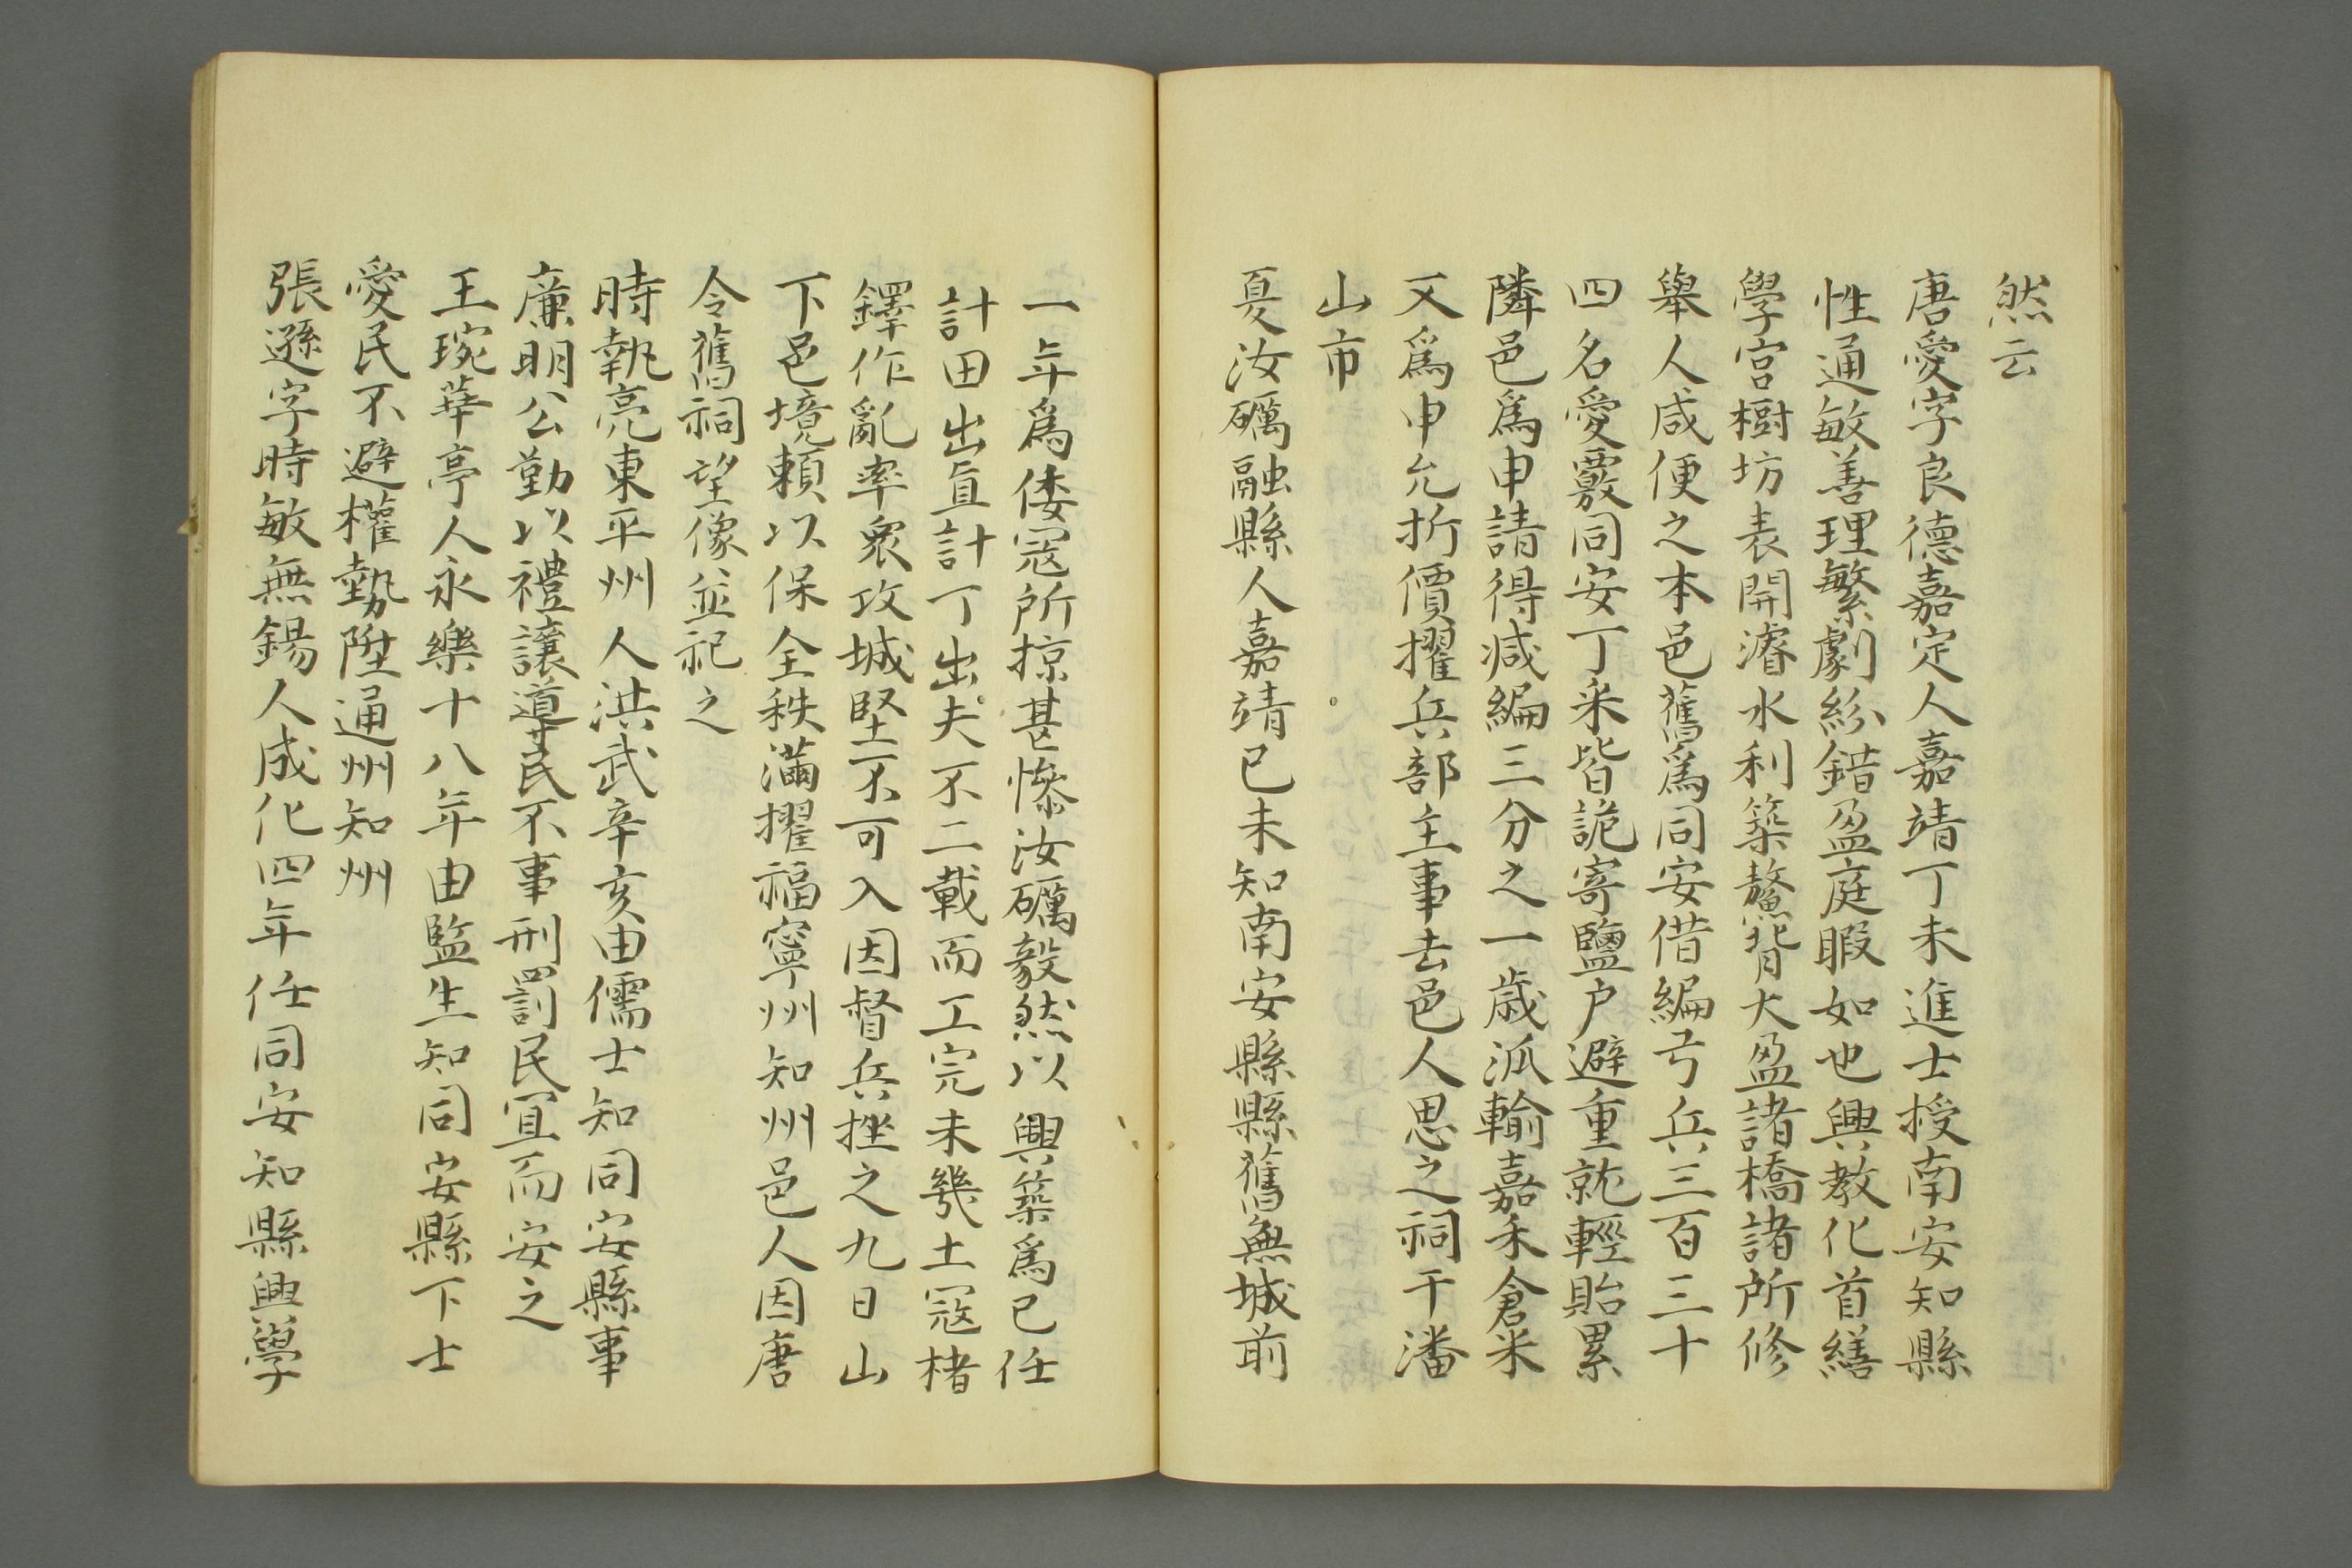 然云
唐愛字良德嘉定人嘉靖丁未進士授南安知縣
性通敏善理繁劇紛錯盈庭暇如也興教化首繕
學宮樹坊表開濬水利築鰲背大盈諸橋諸所修
舉人咸便之本邑舊爲同安借編弓兵三百三十
四名愛覈同安丁米皆詭寄鹽户避重就輕貽累
隣邑爲申請得減編三分之一歲派輸嘉禾倉米
又爲申允折價擢兵部主事去邑人思之祠于潘
山市
夏汝礪融縣人嘉靖己未知南安縣縣舊無城前
一年爲倭寇所掠甚慘汝礪毅然以興築爲己任
計田出直計丁出夫不二載而工完未幾土寇楮
鐸作亂率衆攻城堅不可入因督兵挫之九日山
下邑境賴以保全秩滿擢福寧州知州邑人因唐
令舊祠塑像並祀之
時執亮東平州人洪武辛亥由儒士知同安縣事
廉明公勤以禮讓導民不事刑罰民宜而安之
王琬華亭人永樂十八年由監生知同安縣下士
愛民不避權勢陞通州知州
張遜字時敏無錫人成化四年任同安知縣興學